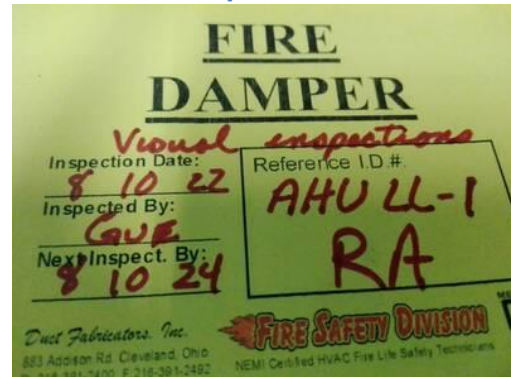 FIRE
DAMPER
Visual inspections
Inspection Date:
8 10 22
Inspected By:
GUE
Next Inspect. By:
8 10 24
Reference I.D.#.
AHU LL-1
RA
Duct Fabricators, Inc.
883 Addison Rd. Cleveland, Ohio
216-391-2400 F 216-391-2492
FIRE SAFETY DIVISION
NEMI Certified HVAC Fire Life Safety Technicians